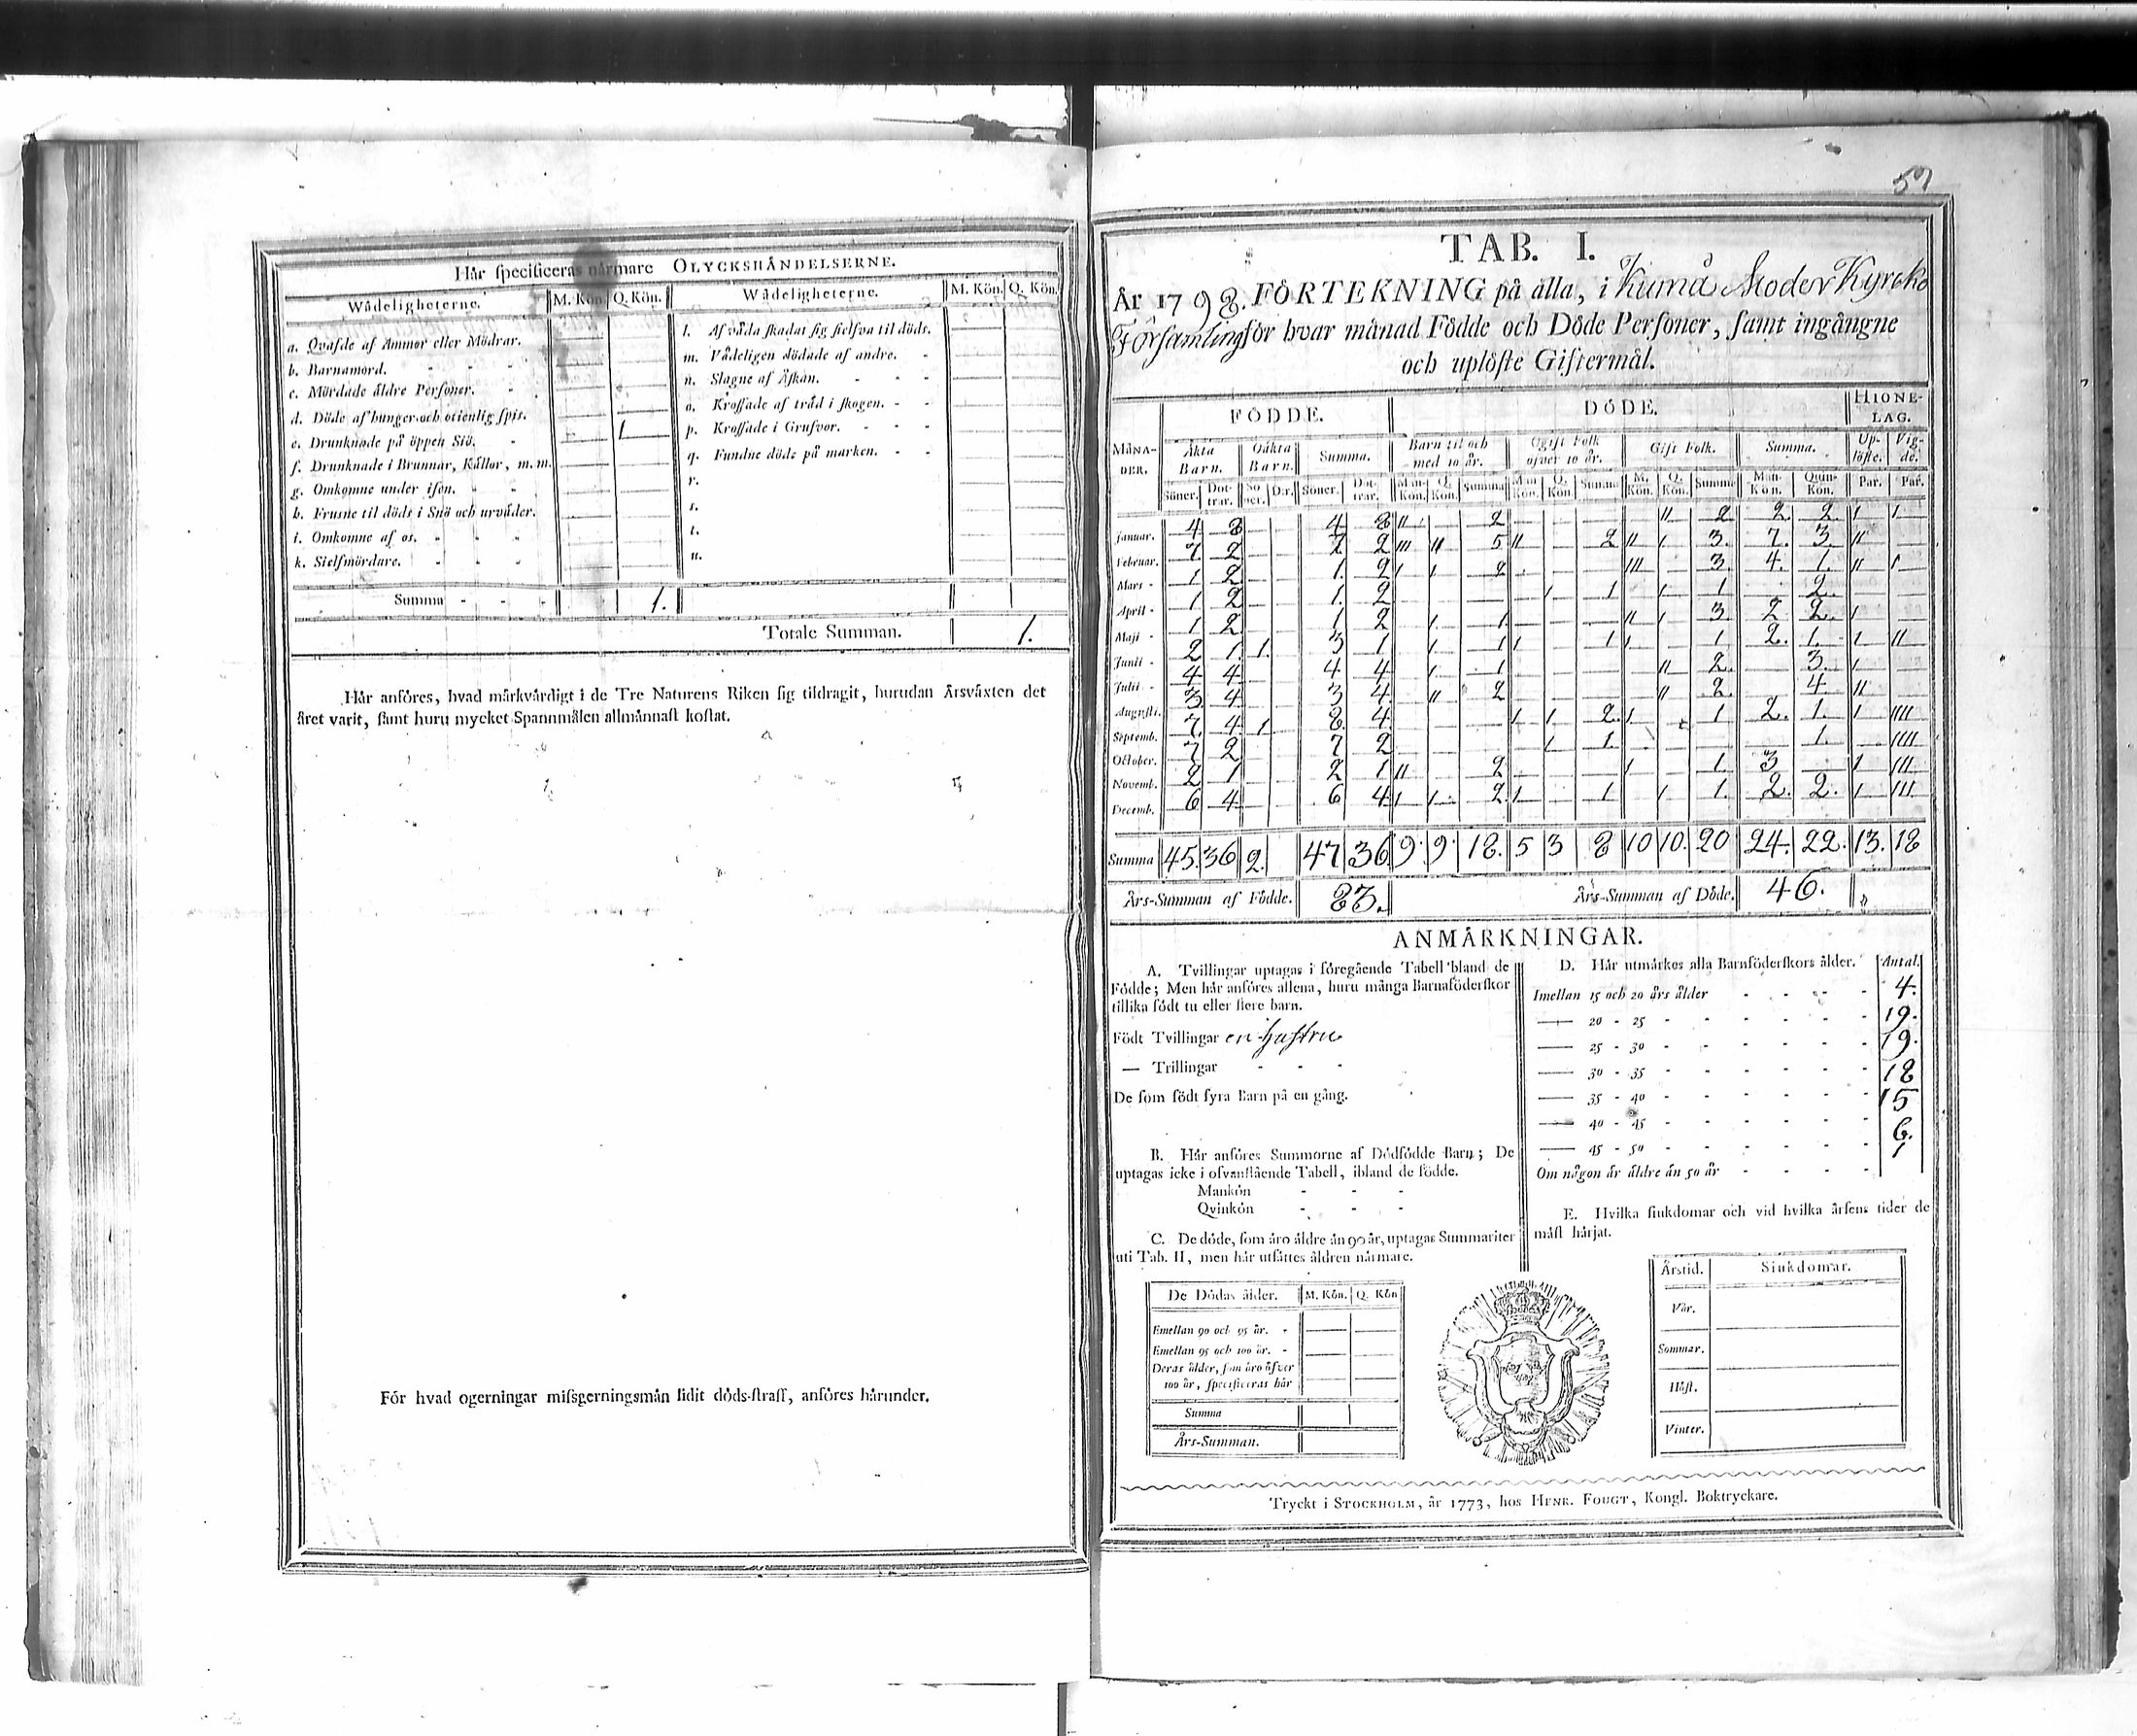 Hår specificeras nårmare OLYCKSHÅNDELSERNE.
Wådeligheterne. M. Kön. Q. Kön. Wådeligheterne. M. Kön. Q. Kön.
a. Qvafde af Ammor eller Mödrar.
b. Barnamord.
c. Mördade äldre Personer.
d. Döde af hunger och otienlig spis.
e. Drunknade på öppen Siö. 1
f. Drunknade i Brunnar, Kållor, m. m.
g. Omkomne under isen.
h. Frusne til döds i Snö och urvåder.
i. Omkomne af os.
k. Sielfmördare.
l. Af våda skadat sig sielfva til döds.
m. Vådeligen dödade af andre.
n. Slagne af Åskan.
o. Krossade af tråd i skogen.
p. Krossade i Grufvor.
q. Fundne döde på marken.
r.
s.
t.
u.
Summa 1.
Totale Summan. 1.
Hår anföres, hvad märkvärdigt i de Tre Naturens Riken sig tildragit, hurudan Årsväxten det
året varit, samt huru mycket Spannmålen allmånnast kostat.
För hvad ogerningar missgerningsmän lidit döds-straff, anföres hårunder.
TAB. I.
År 1798. FÖRTEKNING på alla, i Kumå Moder Kyrcko
Församling för hvar månad Födde och Döde Personer, samt ingångne
och uplöste Giftermål.
MÅNADER. FÖDDE. DÖDE. HIONELAG.
Äkta Barn. Oäkta Barn. Summa. Barn til och med 10 år. Ogift Folk öfver 10 år. Gift Folk. Summa. Uplöste. Vigde.
Söner. Dottrar. Söner. D:r. Söner. Dottrar. Mankön. Q. Kön. Summa Man Kön. Q. Kön Summa M. Kön. Q. Kön. Summa Man-Kön. Quin-Kön. Par. Par.
Januar. 4 8 4 8 11 2 11 2 2. 2. 1 1
Februar. 7 2 7 2 111 11 5 11 2 11 1 3. 7. 3. 11
Mars 1 2 1. 2 1 1 2 111 3 4. 1. 11 1
April 1 2 1. 2 1 1 1 1 2.
Maji 1 2 1 2 1 1 11 1 3. 2 2. 1
Junii 2 1 1. 3 1 1 1 1 1 1 1 2. 1. 1 11
Julii 4 4 4 4 1 1 11 2. 3. 1
Augusti. 3 4 3 4. 11 2 11 2. 4 11
Septemb. 7 4 1 8. 4. 1 1 2. 1 1 2. 1. 1 1111
October. 7 2 7 2 1 1. 1. 1111
Novemb. 2 1 2 1 11 2 1 1. 3 1 111
Decemb. 6 4 6 4 1 1 2. 1 1 1 1. 2. 2. 1 111
Summa 45. 36 2. 47 36 9. 9. 18. 5 3 8 10 10. 20 24. 22. 13. 18
Års-Summan af Födde. 83. Års-Summan af Döde. 46.
ANMÄRKNINGAR.
A. Tvillingar uptagas i föregående Tabell bland de
Födde; Men här anföres allena, huru många Barnaföderskor
tillika födt tu eller flere barn.
Födt Tvillingar en hustru
— Trillingar
De som födt fyra Barn på en gång.
B. Hår anföres Summorne af Dödfödde Barn; De
uptagas icke i ofvanstående Tabell, ibland de födde.
Mankön
Qvinkön
C. De döde, som äro äldre än 90 år, uptagas Summariter
uti Tab. II, men här utsättes åldren närmare.
De Dödas ålder. M. Kön. Q. Kön
Emellan 90 och 95 år.
Emellan 95 och 100 år.
Deras ålder, som äro öfver
100 år, specificeras här
Summa
Års-Summan.
D. Hår utmärkes alla Barnföderskors ålder. Antal.
Imellan 15 och 20 års ålder 4.
— 20 - 25 19.
— 25 - 30 19.
— 30 - 35 18
— 35 - 40 15
— 40 - 45 6.
— 45 - 50 1
Om någon är äldre än 50 år
E. Hvilka siukdomar och vid hvilka årsens tider de
mäst härjat.
Årstid. Siukdomar.
Vår.
Sommar.
Höst.
Vinter.
Tryckt i STOCKHOLM, år 1773, hos HENR. FOUGT, Kongl. Boktryckare.